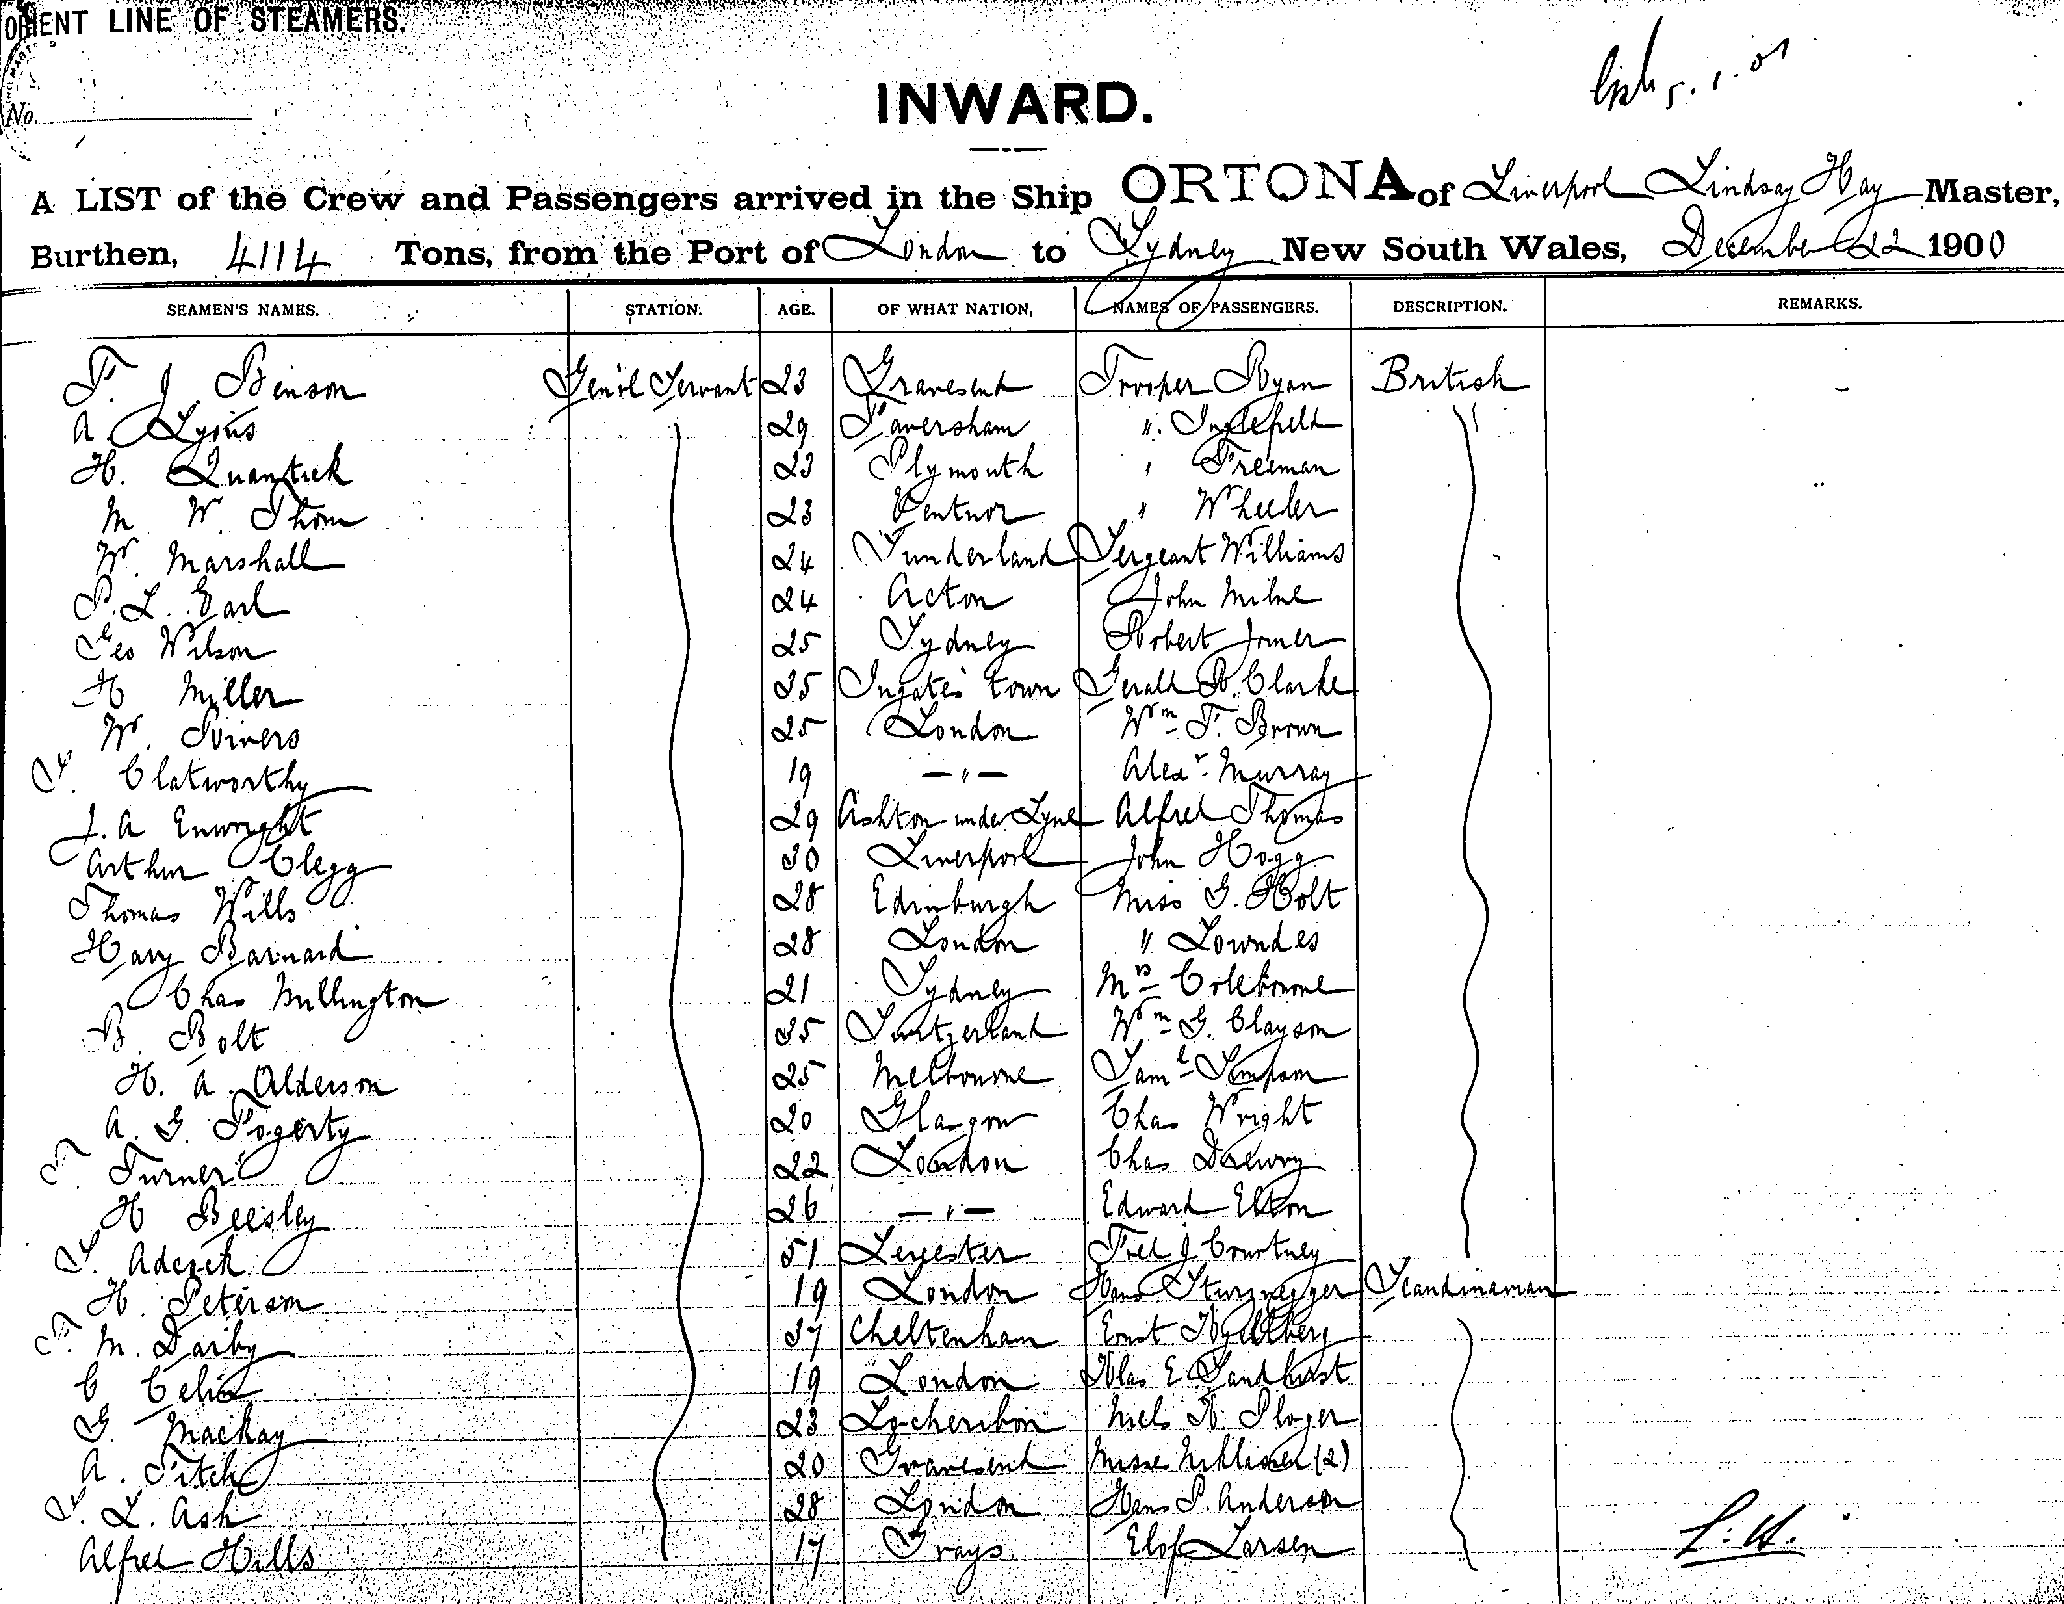 ORIENT LINE OF STEAMERS.
5.1.01
No.
INWARD.
A LIST of the Crew and Passengers arrived in the Ship ORTONA of Liverpool Lindsay Hay Master,
Burthen, 4114 Tons, from the Port of London to Sydney New South Wales, December 22 1900
SEAMEN'S NAMES. STATION. AGE. OF WHAT NATION, NAMES OF PASSENGERS. DESCRIPTION. REMARKS.
F. J. Benson Gen'l Servant 23 Gravesend Trooper Ryan British
A Lyons 29 Faversham " Inglefield "
H. Quantick 23 Plymouth " Freeman
M W. Thom 23 Ventnor " Wheeler
W. Marshall 24 Sunderland Sergeant Williams
P. L. Earl 24 Acton John Milne
Geo Wilson 25 Sydney Robert
H Miller 35 Ingate's town Gerald R. Clarke
W. Rivers 25 London Wm F. Brown
F. Clatworthy 19 — " — Alexr Murray
J. A Enwright 29 Ashton under Lyne Alfred Thomas
Arthur Clegg 30 Liverpool John Hogg
Thomas Wills 28 Edinburgh Miss G. Holt
Harry Barnard 28 London " Lowndes
Chas Millington 21 Sydney Mrs Colebourne
B. Bolt 35 Switzerland Wm G. Clayson
H. A. Alderson 25 Melbourne Saml Simpson
A. G. Fogerty 20 Glasgow Chas Wright
T. Turner 22 London Chas Drewry
H Beesley 26 — " — Edward Elton
F. 51 Leicester Fred J Courtney
H. Peterson 19 London Hans Sturznegger Scandinavian
T. M. Darby 37 Cheltenham Ernst
C 19 London E Sandhurst
G. Mackay 23 Niels
A. Fitch 20 Gravesend (2)
F. L. Ash 28 London Hans P. Anderson
Alfred Hills 17 Grays Elof Larsen
L. H.